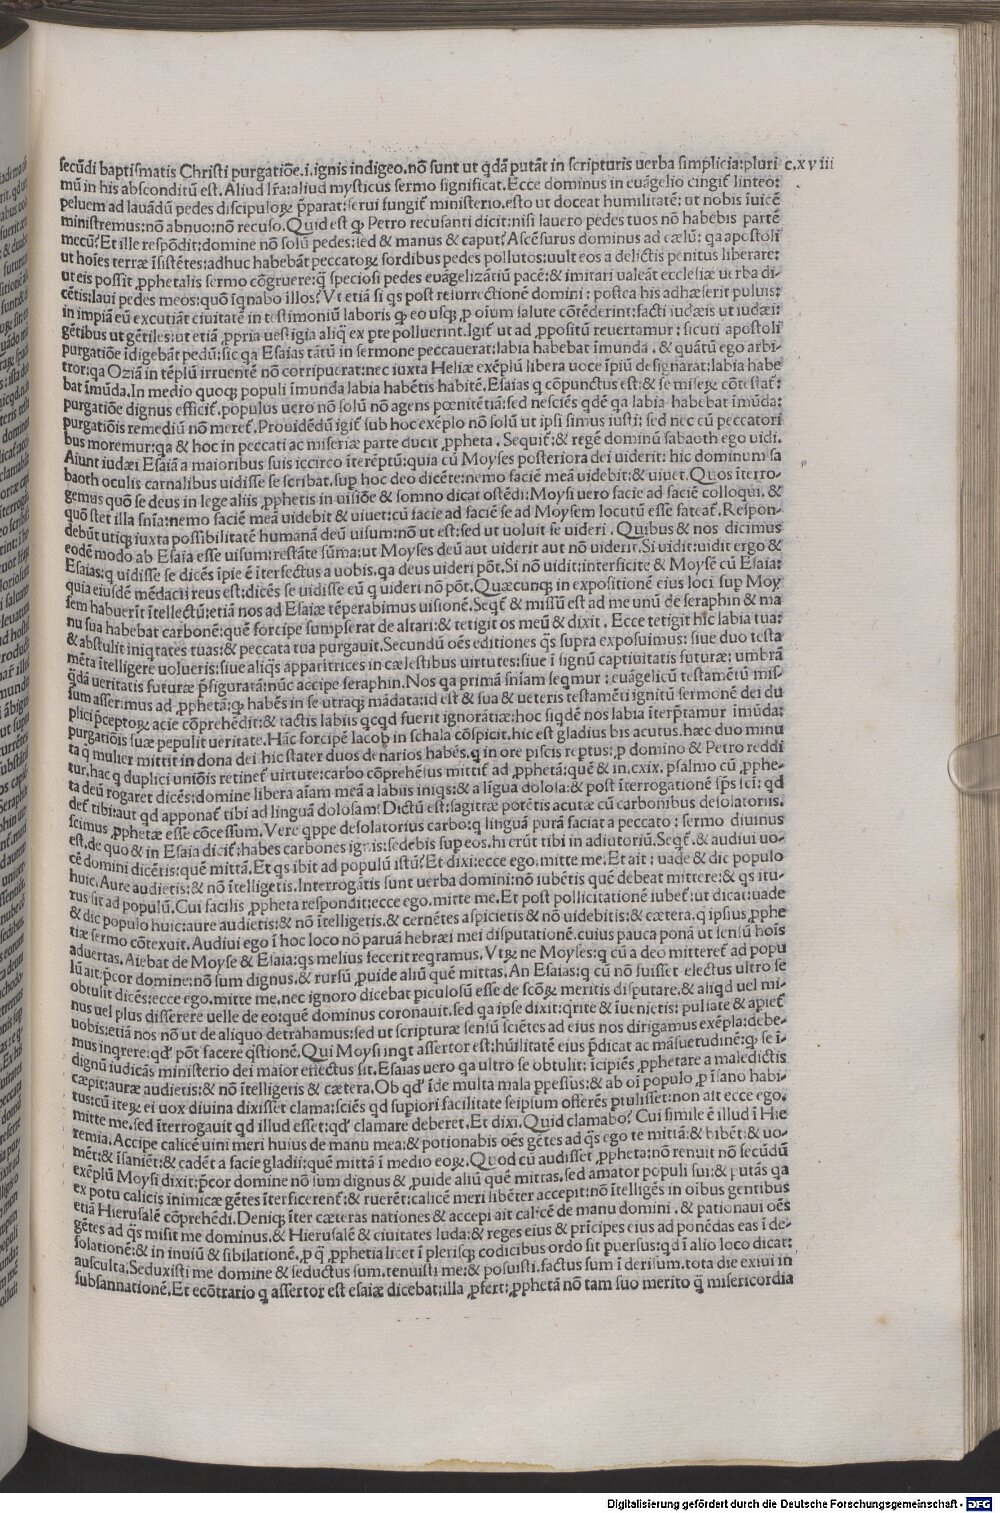 secūdi baptismatis Christi purgatiõe.i.ignis indigeo.nõ sunt ut qdã putãt in scripturis uerba simplicia:pluri c.xviii
mũ in his absconditũ est.Aliud lr̃a:aliud mysticus sermo significat.Ecce dominus in euãgelio cingit̃ linteo:
peluem ad lauãdũ pedes discipuloꝝ p̃parat:serui fungit̃ ministerio.esto ut doceat humilitatẽ: ut nobis ĩuicẽ
ministremus:nõ abnuo:nõ recuso.Quid est qꝫ Petro recusanti dicit:nisi lauero pedes tuos nõ habebis partẽ
mecũ?Et ille respõdit:domine nõ solũ pedes:sed & manus & caput?Ascẽsurus dominus ad cælũ: qa apostoli
ut hoĩes terræ ĩsistẽtes:adhuc habebãt peccatoꝝ sordibus pedes pollutos:uult eos a delictis penitus liberare:
ut eis possit ꝓphetalis sermo cõgruere:q̃ speciosi pedes euãgelizãtiũ pacẽ:& imitari ualeãt ecclesiæ uerba di-
cẽtis:laui pedes meos:quõ ĩqnabo illos?Vt etiã si qs post resurrectionẽ domini : postea his adhæserit puluis:
in impiã eũ excutiãt ciuitatẽ in testimoniũ laboris qꝫ eo usqꝫ ꝓ oĩum salute cõtẽderint:facti iudæis ut iudæi:
gẽtibus ut gẽtiles:ut etiã ꝓpria uestigia aliq̃ ex pte polluerint.Igit̃ ut ad ꝓpositũ reuertamur : sicuti apostoli
purgatiõe ĩdigebãt pedũ:sic qa Esaias tãtũ in sermone peccauerat:labia habebat ĩmunda . & quãtũ ego arbi-
tror:qa Oziã in tẽplũ irruentẽ nõ corripuerat:nec iuxta Heliæ exẽplũ libera uoce ĩpiũ designarat:labia habe
bat ĩmũda.In medio quoqꝫ populi ĩmunda labia habẽtis habitẽ.Esaias q cõpunctus est:& se miseꝝ cõtestat̃:
purgatiõe dignus efficit̃.populus uero nõ solũ nõ agens pœnitẽtiã:sed nesciẽs qdẽ qa labia habebat ĩmũda:
purgatiõis remediũ nõ meret̃.Prouidẽdũ igit̃ sub hoc exẽplo nõ solũ ut ipsi simus iusti: sed nec cũ peccatori
bus moremur:qa & hoc in peccati ac miseriæ parte ducit ꝓpheta . Sequit̃:& regẽ dominũ sabaoth ego uidi.
Aiunt iudæi Esaiã a maioribus suis iccirco ĩterẽptũ:quia cũ Moyses posteriora dei uiderit: hic dominum sa
baoth oculis carnalibus uidisse se scribat.sup hoc deo dicẽte:nemo faciẽ meã uidebit:& uiuet.Quos ĩterro-
gemus quõ se deus in lege aliis ꝓphetis in uisiõe & somno dicat ostẽdi:Moysi uero facie ad faciẽ colloqui. &
quõ stet illa snĩa:nemo faciẽ meã uidebit & uiuet:cũ facie ad faciẽ se ad Moysem locutũ esse fateat̃.Respon-
debũt utiqꝫ iuxta possibilitatẽ humanã deũ uisum:nõ ut est:sed ut uoluit se uideri . Quibus & nos dicimus
eodẽ modo ab Esaia esse uisum:restãte sũma:ut Moyses deũ aut uiderit aut nõ uiderit.Si uidit:uidit ergo &
Esaias:q uidisse se dicẽs ĩpie ẽ ĩterfectus a uobis.qa deus uideri põt.Si nõ uidit:interficite & Moysẽ cũ Esaia:
quia eiusdẽ mẽdacii reus est:dicẽs se uidisse eũ q uideri nõ põt.Quæcunqꝫ in expositionẽ eius loci sup Moy
sem habuerĩt ĩtellectũ:etiã nos ad Esaiæ tẽperabimus uisionẽ.Seqt̃ & missũ est ad me unũ de seraphin & ma
nu sua habebat carbonẽ:quẽ forcipe sumpserat de altari:& tetigit os meũ & dixit . Ecce tetigit hic labia tua:
& abstulit iniqtates tuas:& peccata tua purgauit.Secundũ oẽs editiones qs supra exposuimus: siue duo testa
mẽta ĩtelligere uolueris:siue aliqs apparitrices in cælestibus uirtutes:siue ĩ signũ captiuitatis futuræ: umbrã
qdã ueritatis futuræ p̃figuratã:nũc accipe seraphin.Nos qa primã sniam seqmur : euãgelicũ testamẽtũ mis-
sum asserimus ad ꝓphetã:qꝫ habẽs in se utraqꝫ mãdata:id est & sua & ueteris testamẽti ignitũ sermonẽ dei du
plici p̃ceptoꝝ acie cõprehẽdit:& tactis labiis qcqd fuerit ignorãtiæ:hoc siqdẽ nos labia ĩterp̃tamur ĩmũda:
purgatiõis suæ pepulit ueritate.Hãc forcipẽ Iacob in schala cõspicit.hic est gladius bis acutus.hæc duo minu
ta q mulier mittit in dona dei:hic stater duos denarios habẽs.q in ore piscis reptus:ꝓ domino & Petro reddi
tur.hac q duplici uniõis retinet̃ uirtute:carbo cõprehẽsus mittit̃ ad ꝓphetã:quẽ & in.cxix. psalmo cũ ꝓphe-
ta deũ rogaret dicẽs:domine libera aĩam meã a labiis iniqs:& a lĩgua dolosa:& post ĩterrogationẽ ip̃s sci: qd
det̃ tibi:aut qd apponat̃ tibi ad linguã dolosam: Dictũ est:sagittæ potẽtis acutæ cũ carbonibus desolatoriis.
scimus ꝓphetæ esse cõcessum.Vere qppe desolatorius carbo:q linguã purã faciat a peccato : sermo diuinus
est.de quo & in Esaia dicit̃:habes carbones ignis:sedebis sup eos.hi erũt tibi in adiutoriũ.Seqt̃.& audiui uo-
cẽ domini dicẽtis:quẽ mittã.Et qs ibit ad populũ istũ?Et dixi:ecce ego.mitte me.Et ait : uade & dic populo
huic.Aure audietis:& nõ ĩtelligetis.Interrogãtis sunt uerba domini:nõ iubẽtis quẽ debeat mittere:& qs itu-
rus sit ad populũ.Cui facilis ꝓpheta respondit:ecce ego.mitte me.Et post pollicitationẽ iubet̃:ut dicat:uade
& dic populo huic:aure audietis:& nõ ĩtelligetis.& cernẽtes aspicietis & nõ uidebitis:& cætera.q ipsius ꝓphe
tiæ sermo cõtexuit.Audiui ego ĩ hoc loco nõ paruã hebræi mei disputationẽ.cuius pauca ponã ut sensũ hoĩs
aduertas.Aiebat de Moyse & Esaia:qs melius fecerit reqramus. Vtꝝ ne Moyses:q cũ a deo mitteret̃ ad popu
lũ ait.p̃cor domine:nõ sum dignus.& rursũ ꝓuide aliũ quẽ mittas.An Esaias:q cũ nõ fuisset electus ultro se
obtulit dicẽs:ecce ego.mitte me.nec ignoro dicebat piculosũ esse de scõꝝ meritis disputare.& aliqd uel mi-
nus uel plus disserere uelle de eo:quẽ dominus coronauit.sed qa ipse dixit:qrite & ĩuenietis: pulsate & apiet̃
uobis:etiã nos nõ ut de aliquo detrahamus:sed ut scripturæ sensũ sciẽtes ad eius nos dirigamus exẽpla:debe-
mus inqrere:qd' põt facere qstionẽ.Qui Moysi inqt assertor est:hũilitatẽ eius p̃dicat ac mãsuetudinẽ:qꝫ se ĩ-
dignũ iudicãs ministerio dei maior effectus sit.Esaias uero qa ultro se obtulit: ĩcipiẽs ꝓphetare a maledictis
cæpit:auræ audietis:& nõ ĩtelligetis & cætera.Ob qd' ĩde multa mala ppessus:& ab oĩ populo ꝓ ĩsano habi-
tus:cũ iteꝝ ei uox diuina dixisset clama:sciẽs qd supiori facilitate seipsum offerẽs ptulisset:non ait ecce ego.
mitte me.sed ĩterrogauit qd illud esset:qd' clamare deberet.Et dixi.Quid clamabo? Cui simile ẽ illud ĩ Hie
remia.Accipe calicẽ uini meri huius de manu mea:& potionabis oẽs gẽtes ad q̃s ego te mittã:& bibẽt:& uo-
mẽt:& ĩsaniẽt:& cadẽt a facie gladii:quẽ mittã ĩ medio eoꝝ.Quod cũ audisset ꝓpheta:nõ renuit nõ secũdũ
exẽplũ Moysi dixit:p̃cor domine nõ sum dignus & ꝓuide aliũ quẽ mittas.sed amator populi sui:& putãs qa
ex potu calicis inimicæ gẽtes ĩterficerent̃:& ruerẽt:calicẽ meri libẽter accepit:nõ ĩtelligẽs in oĩbus gentibus
etiã Hierusalẽ cõprehẽdi.Deniqꝫ ĩter cæteras nationes & accepi ait calicẽ de manu domini . & potionaui oẽs
gẽtes ad q̃s misit me dominus.& Hierusalẽ & ciuitates Iuda:& reges eius & prĩcipes eius ad ponẽdas eas ĩ de-
solationẽ:& in inuiũ & sibilationẽ.ꝓ q̃ ꝓphetia licet ĩ plerisqꝫ codicibus ordo sit puersus:qd ĩ alio loco dicat:
ausculta.Seduxisti me domine & seductus sum.tenuisti me:& potuisti.factus sum ĩ derisum.tota die exiui in
subsannationẽ.Et ecõtrario q assertor est esaiæ dicebat:illa ꝓfert:ꝓphetã nõ tam suo merito q̃ misericordia
Digitalisierung gefördert durch die Deutsche Forschungsgemeinschaft - DFG